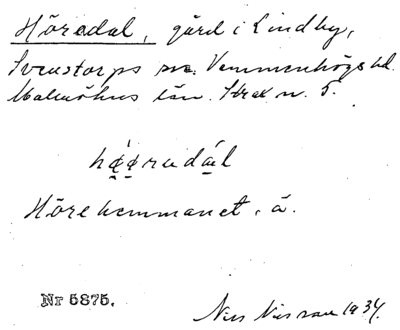 Höredal, gård i Lindby,
Svenstorps sn. Vemmenhögs hd.
Malmöhus län. Skax n. 5.
hǿørudál
Hörehemmanet, ä.
Nr 5875. Nils Nilsson 1934.